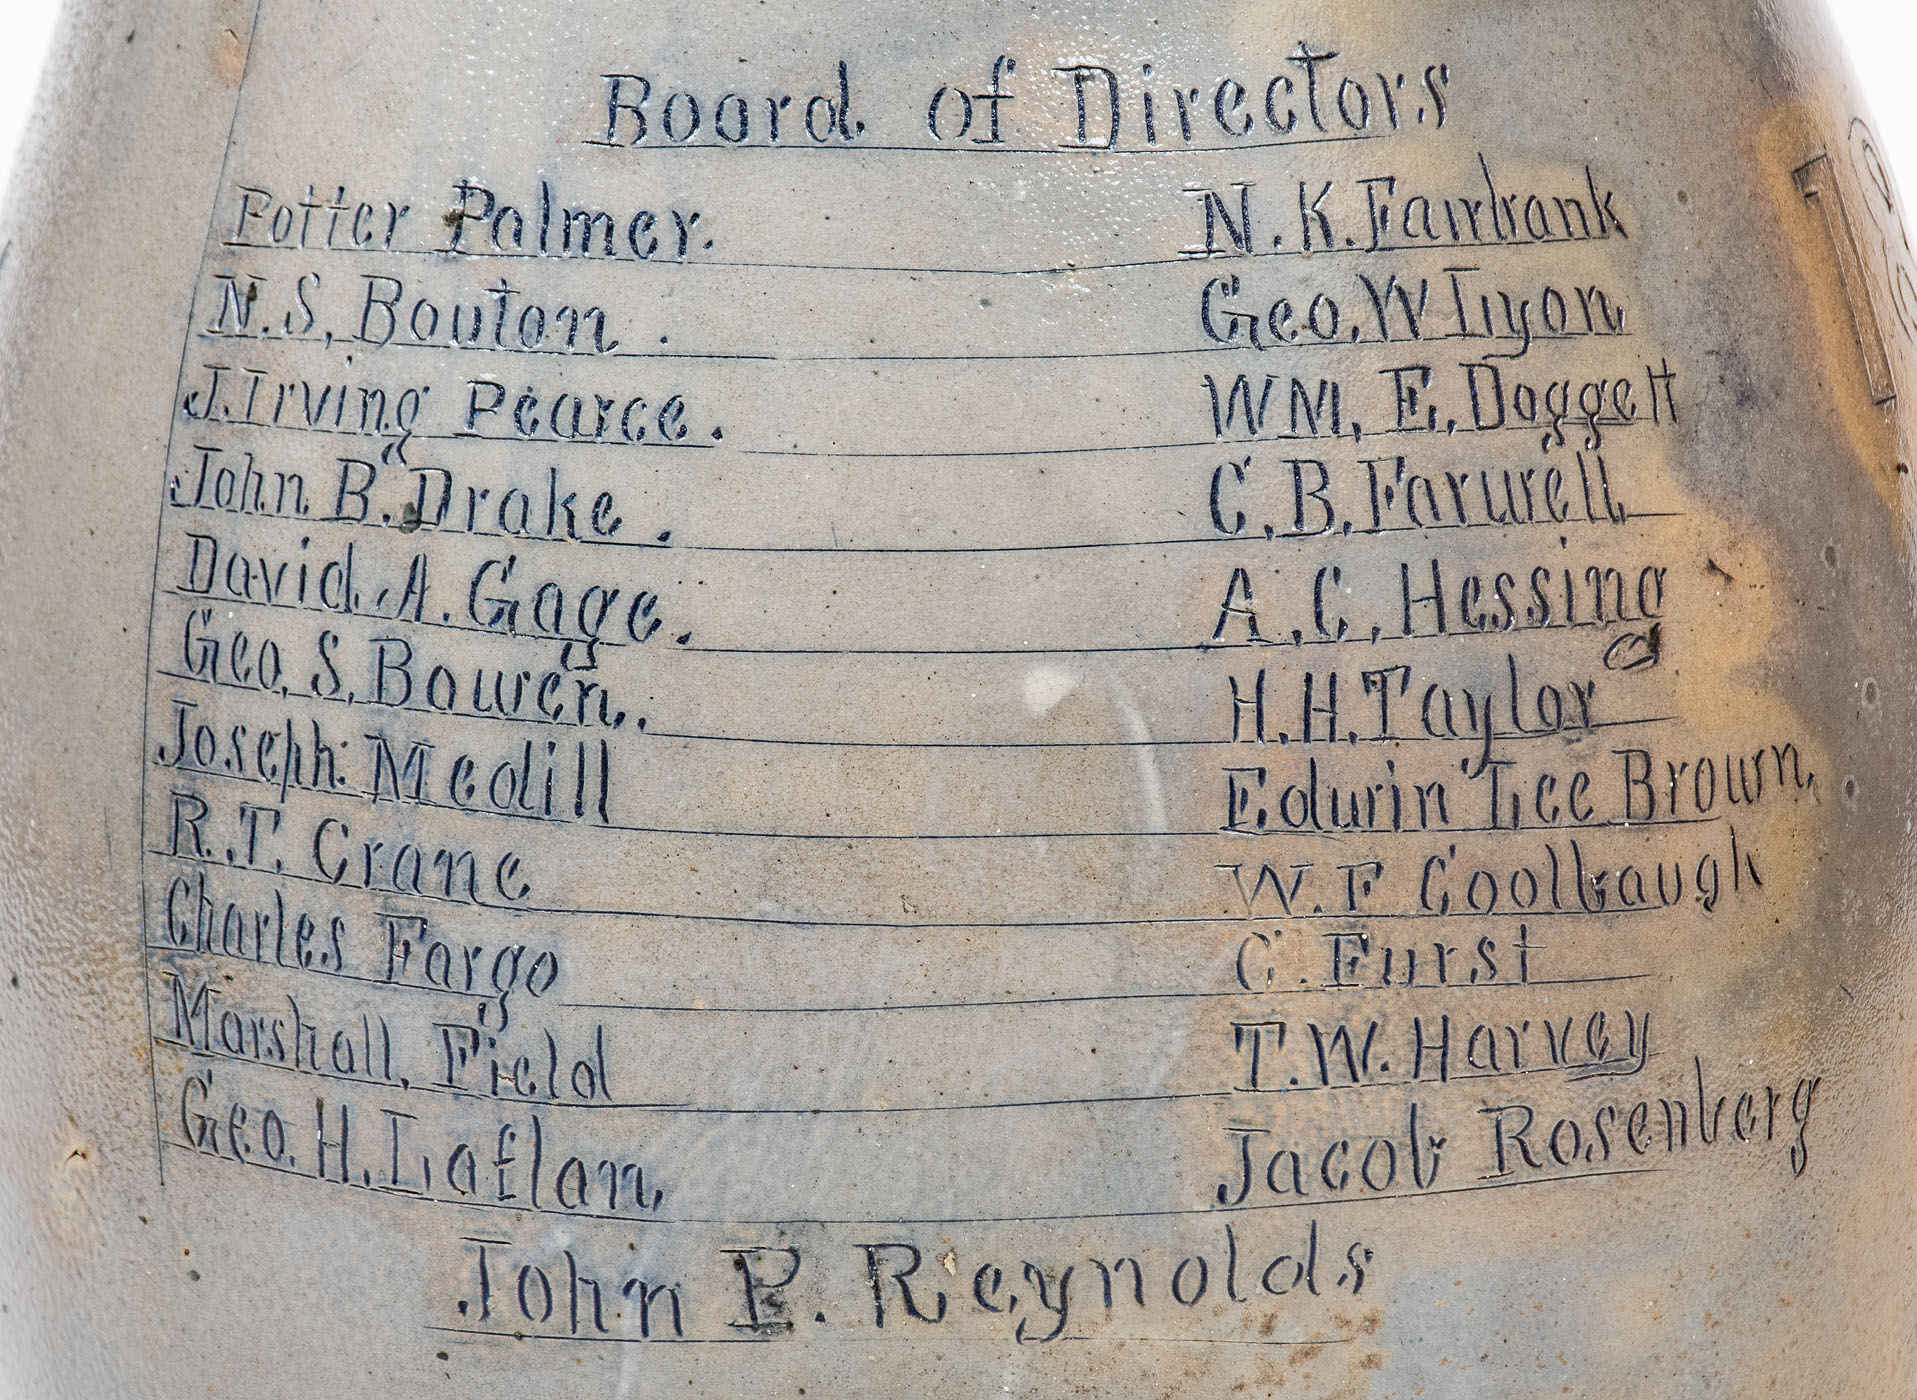 Board of Directors
Potter Palmer. N. K. Fairbank
N. S. Bouton. Geo. W Lyon
J. Irving Pearce. WM. E. Doggett
John B. Drake. C. B. Farwell
David. A. Gage. A. C. Hessing
Geo. S. Bowen. H. H. Taylor
Joseph Medill Edwin Lee Brown.
R. T. Crane W. F Coolbaugh
Charles Fargo C. Furst
Marshall. Field T. W. Harvey
Geo. H. Laflan, Jacob Rosenberg
John P. Reynolds